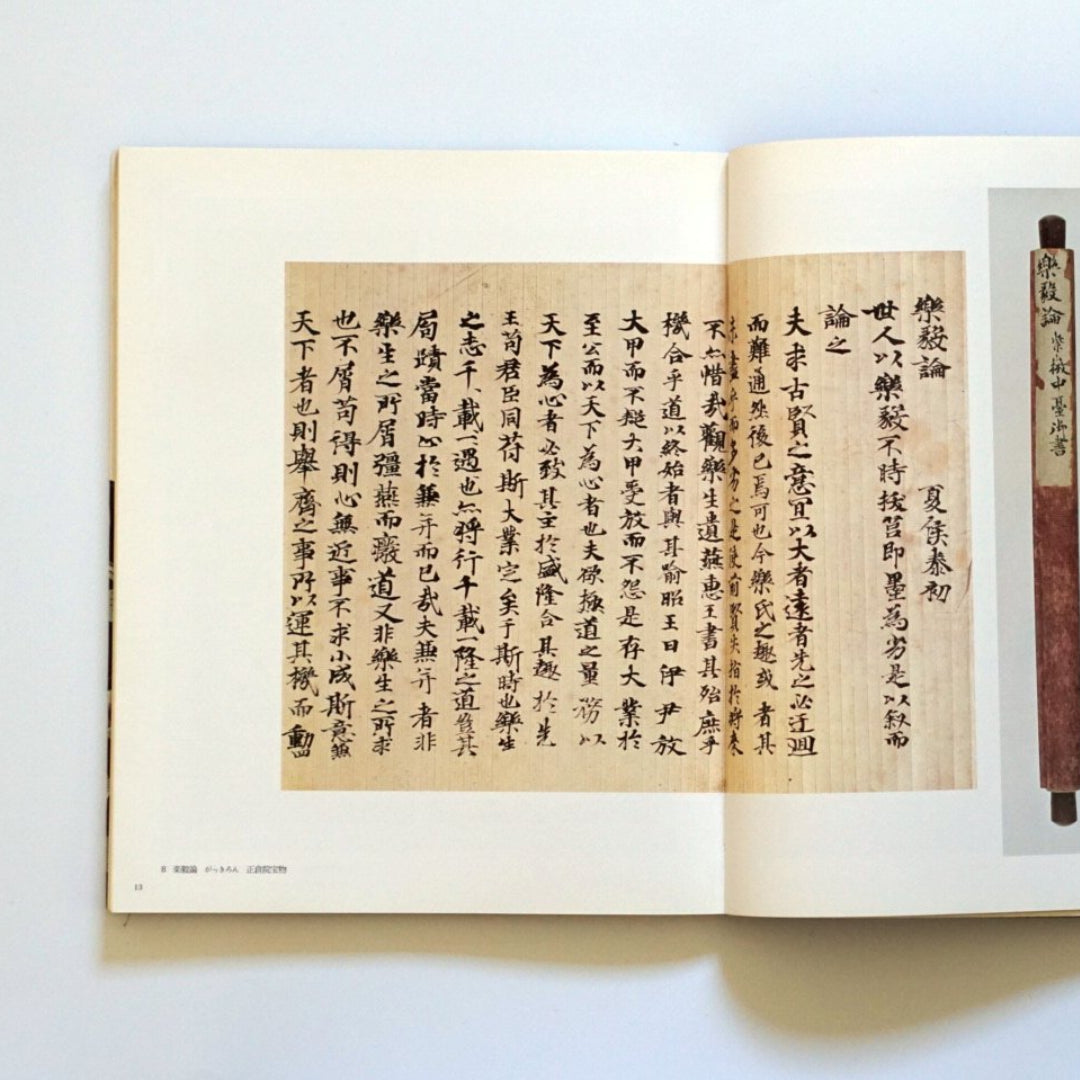 樂毅論 紫微中臺御書
樂毅論 夏侯泰初
世人以樂毅不時拔莒即墨為劣是以叙而
論之
夫求古賢之意宜以大者遠者先之必迂迴
而難通然後已焉可也今樂氏之趣或者其
未盡乎而多劣之是使前賢失指於將來
不亦惜哉觀樂生遺燕惠王書其殆庶乎
機合乎道以終始者與其喻昭王曰伊尹放
大甲而不疑大甲受放而不怨是存大業於
至公而以天下為心者也夫欲極道之量務以
天下為心者必致其主於盛隆合其趣於先
王苟君臣同苻斯大業定矣于斯時也樂生
之志千載一遇也亦將行千載一隆之道豈其
局蹟當時心於兼并而已哉夫兼并者非
樂生之所屑彊燕而廢道又非樂生之所求
也不屑苟得則心無近事不求小成斯意兼
天下者也則舉齊之事所以運其機而動
8 楽毅論 がっきろん 正倉院宝物
13